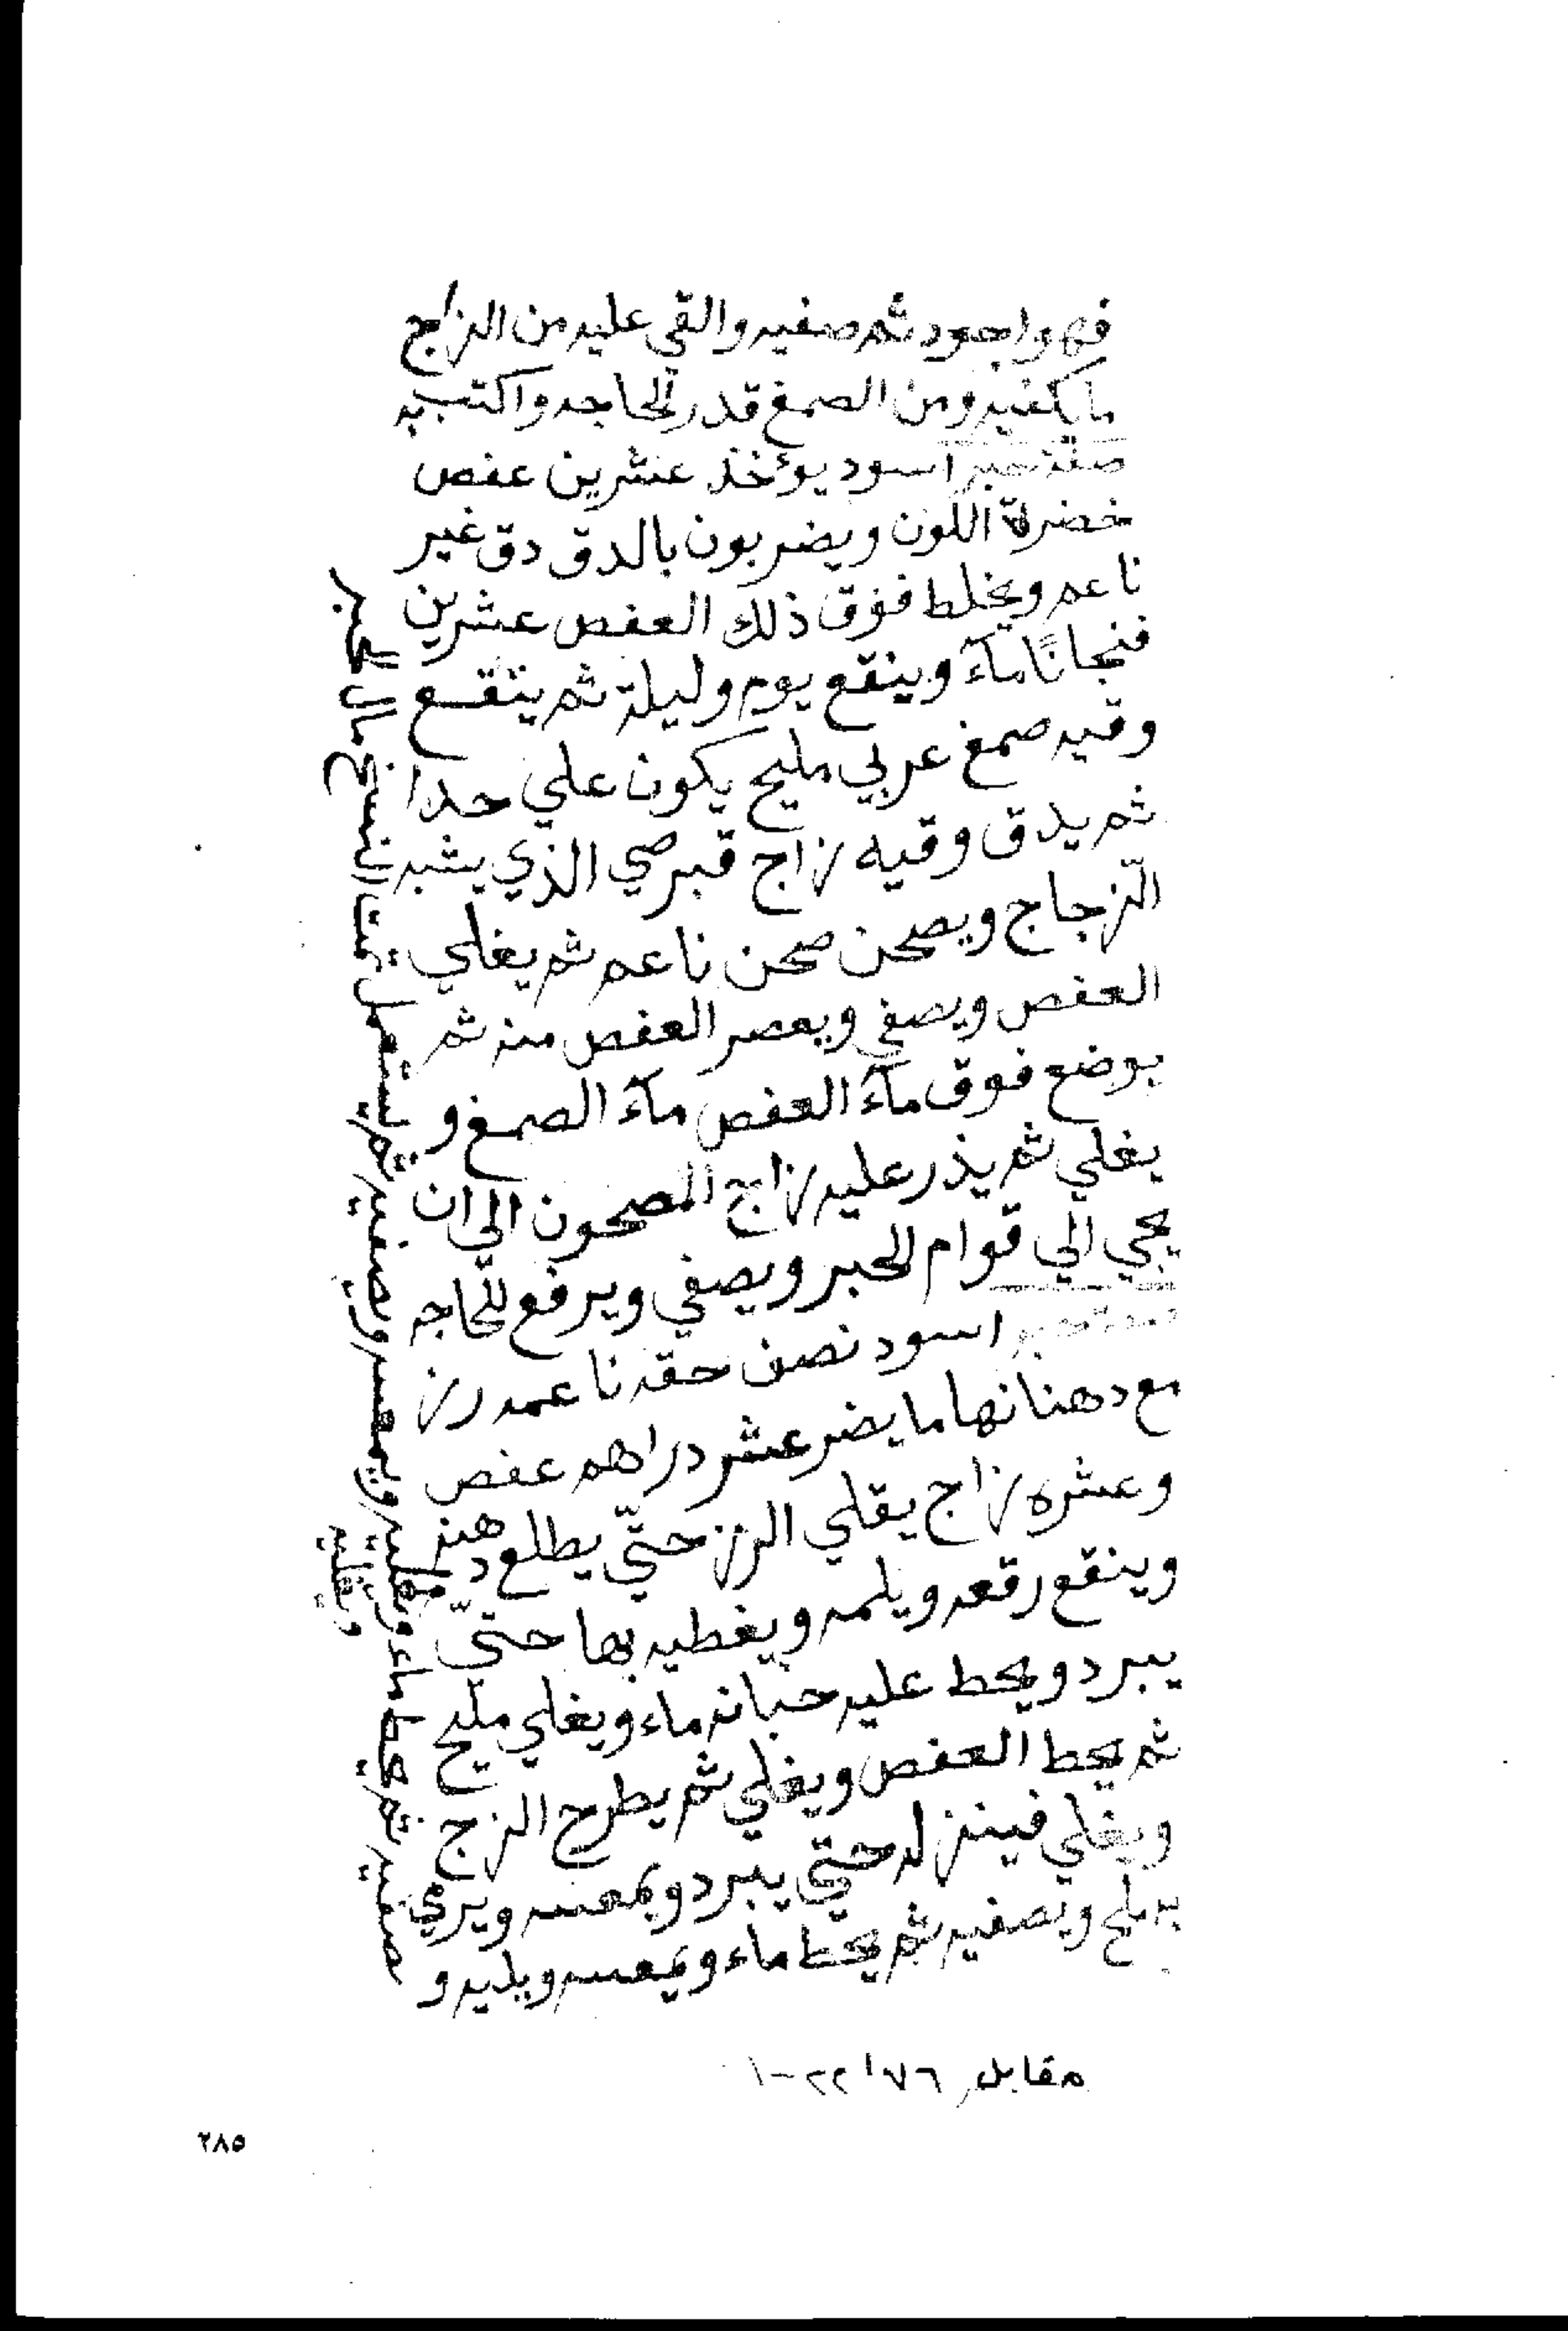 فهو اجود ثم صفيه والقي عليه من الزاج
ما يكفيه ومن الصمغ قدر الحاجه واكتب به
صفة حبر اسود يوئخذ عشرين عفص
خضرة اللون ويضربون بالدق دق غير
ناعم ويخلط فوق ذلك العفص عشرين
فنجانًا مآء وينقع يوم وليلة ثم ينقع
وقيه صمغ عربي مليح يكون علي حدا
ثم يدق وقيه زاج قبرصي الذي يشبه
الزجاج ويصحن صحن ناعم ثم يغلي
العفص ويصفي ويعصر العفص منه ثم
يوضع فوق مآء العفص مآء الصمغ و
يغلي ثم يذر عليه زاج المصحون الي ان
يجي الي قوام الحبر ويصفي ويرفع للحاجه
صفة حبر اسود نصف حقه ناعمه رز
مع دهنانها ما يضر عشر دراهم عفص
وعشره زاج يقلي الرز حتّي يطلع دهنه
وينقع رقعه ويلمه ويغطيه بها حتيّ
يبرد ويحط عليه خبانه ماء ويغلي مليح
ثم يحط العفص ويغلي ثم يطرح الزج
ويغلي فينزله حتي يبرد ويمعسه ويرمي
به ملح ويصفيه ثم يحط ماء ويمعسه ويليه و
صفيه ثم يحط ماء ويمعسه ويصفيه ثم يستعمل تمت
ويغليه
مقابل ٧٦ ا ٢٢-١
٢٨٥